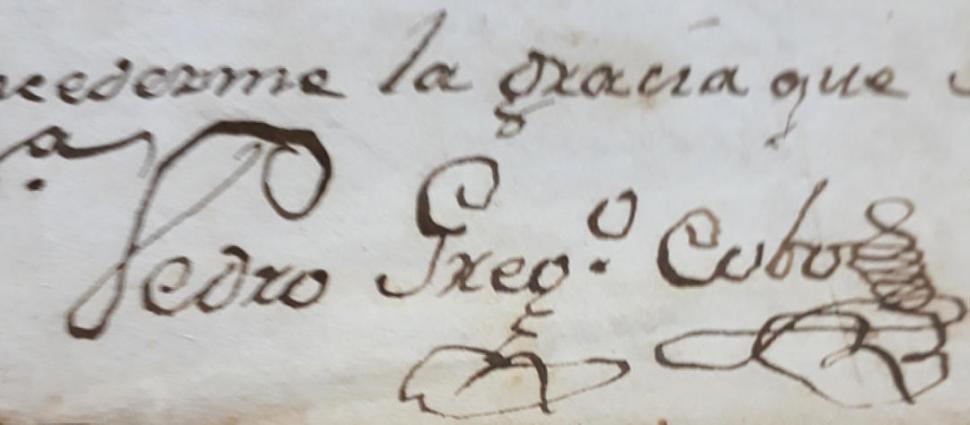 cederme la gracia que
Pedro Greg.º Cubo